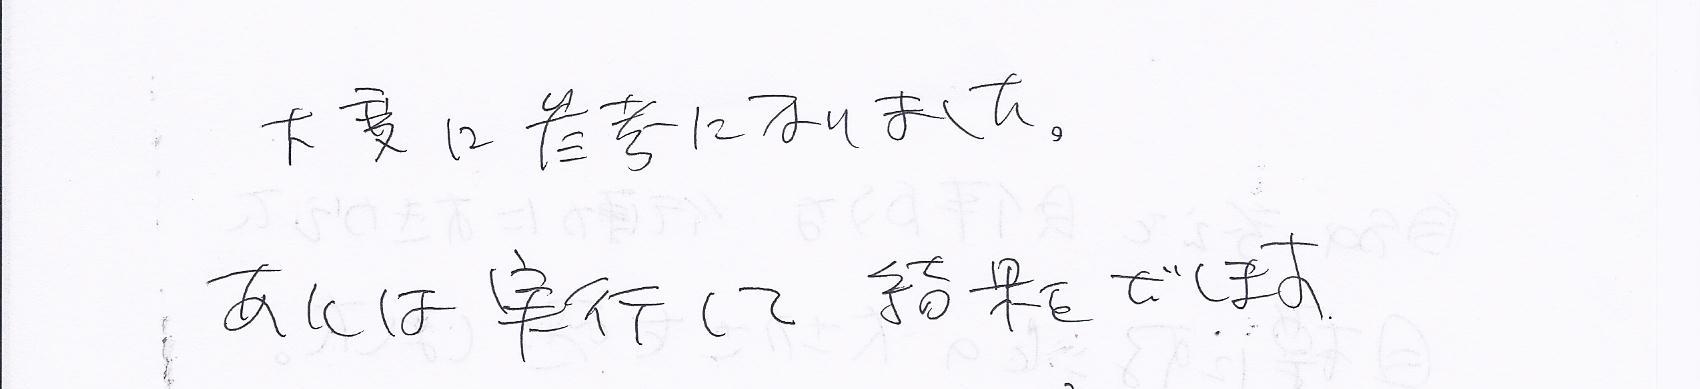 大変に参考になりました。
あとは実行して結果をだします